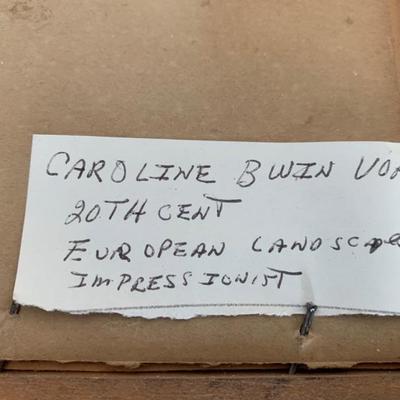 CAROLINE BWIN VOR
20TH CENT
EUROPEAN LANDSCAPE
IMPRESSIONIST